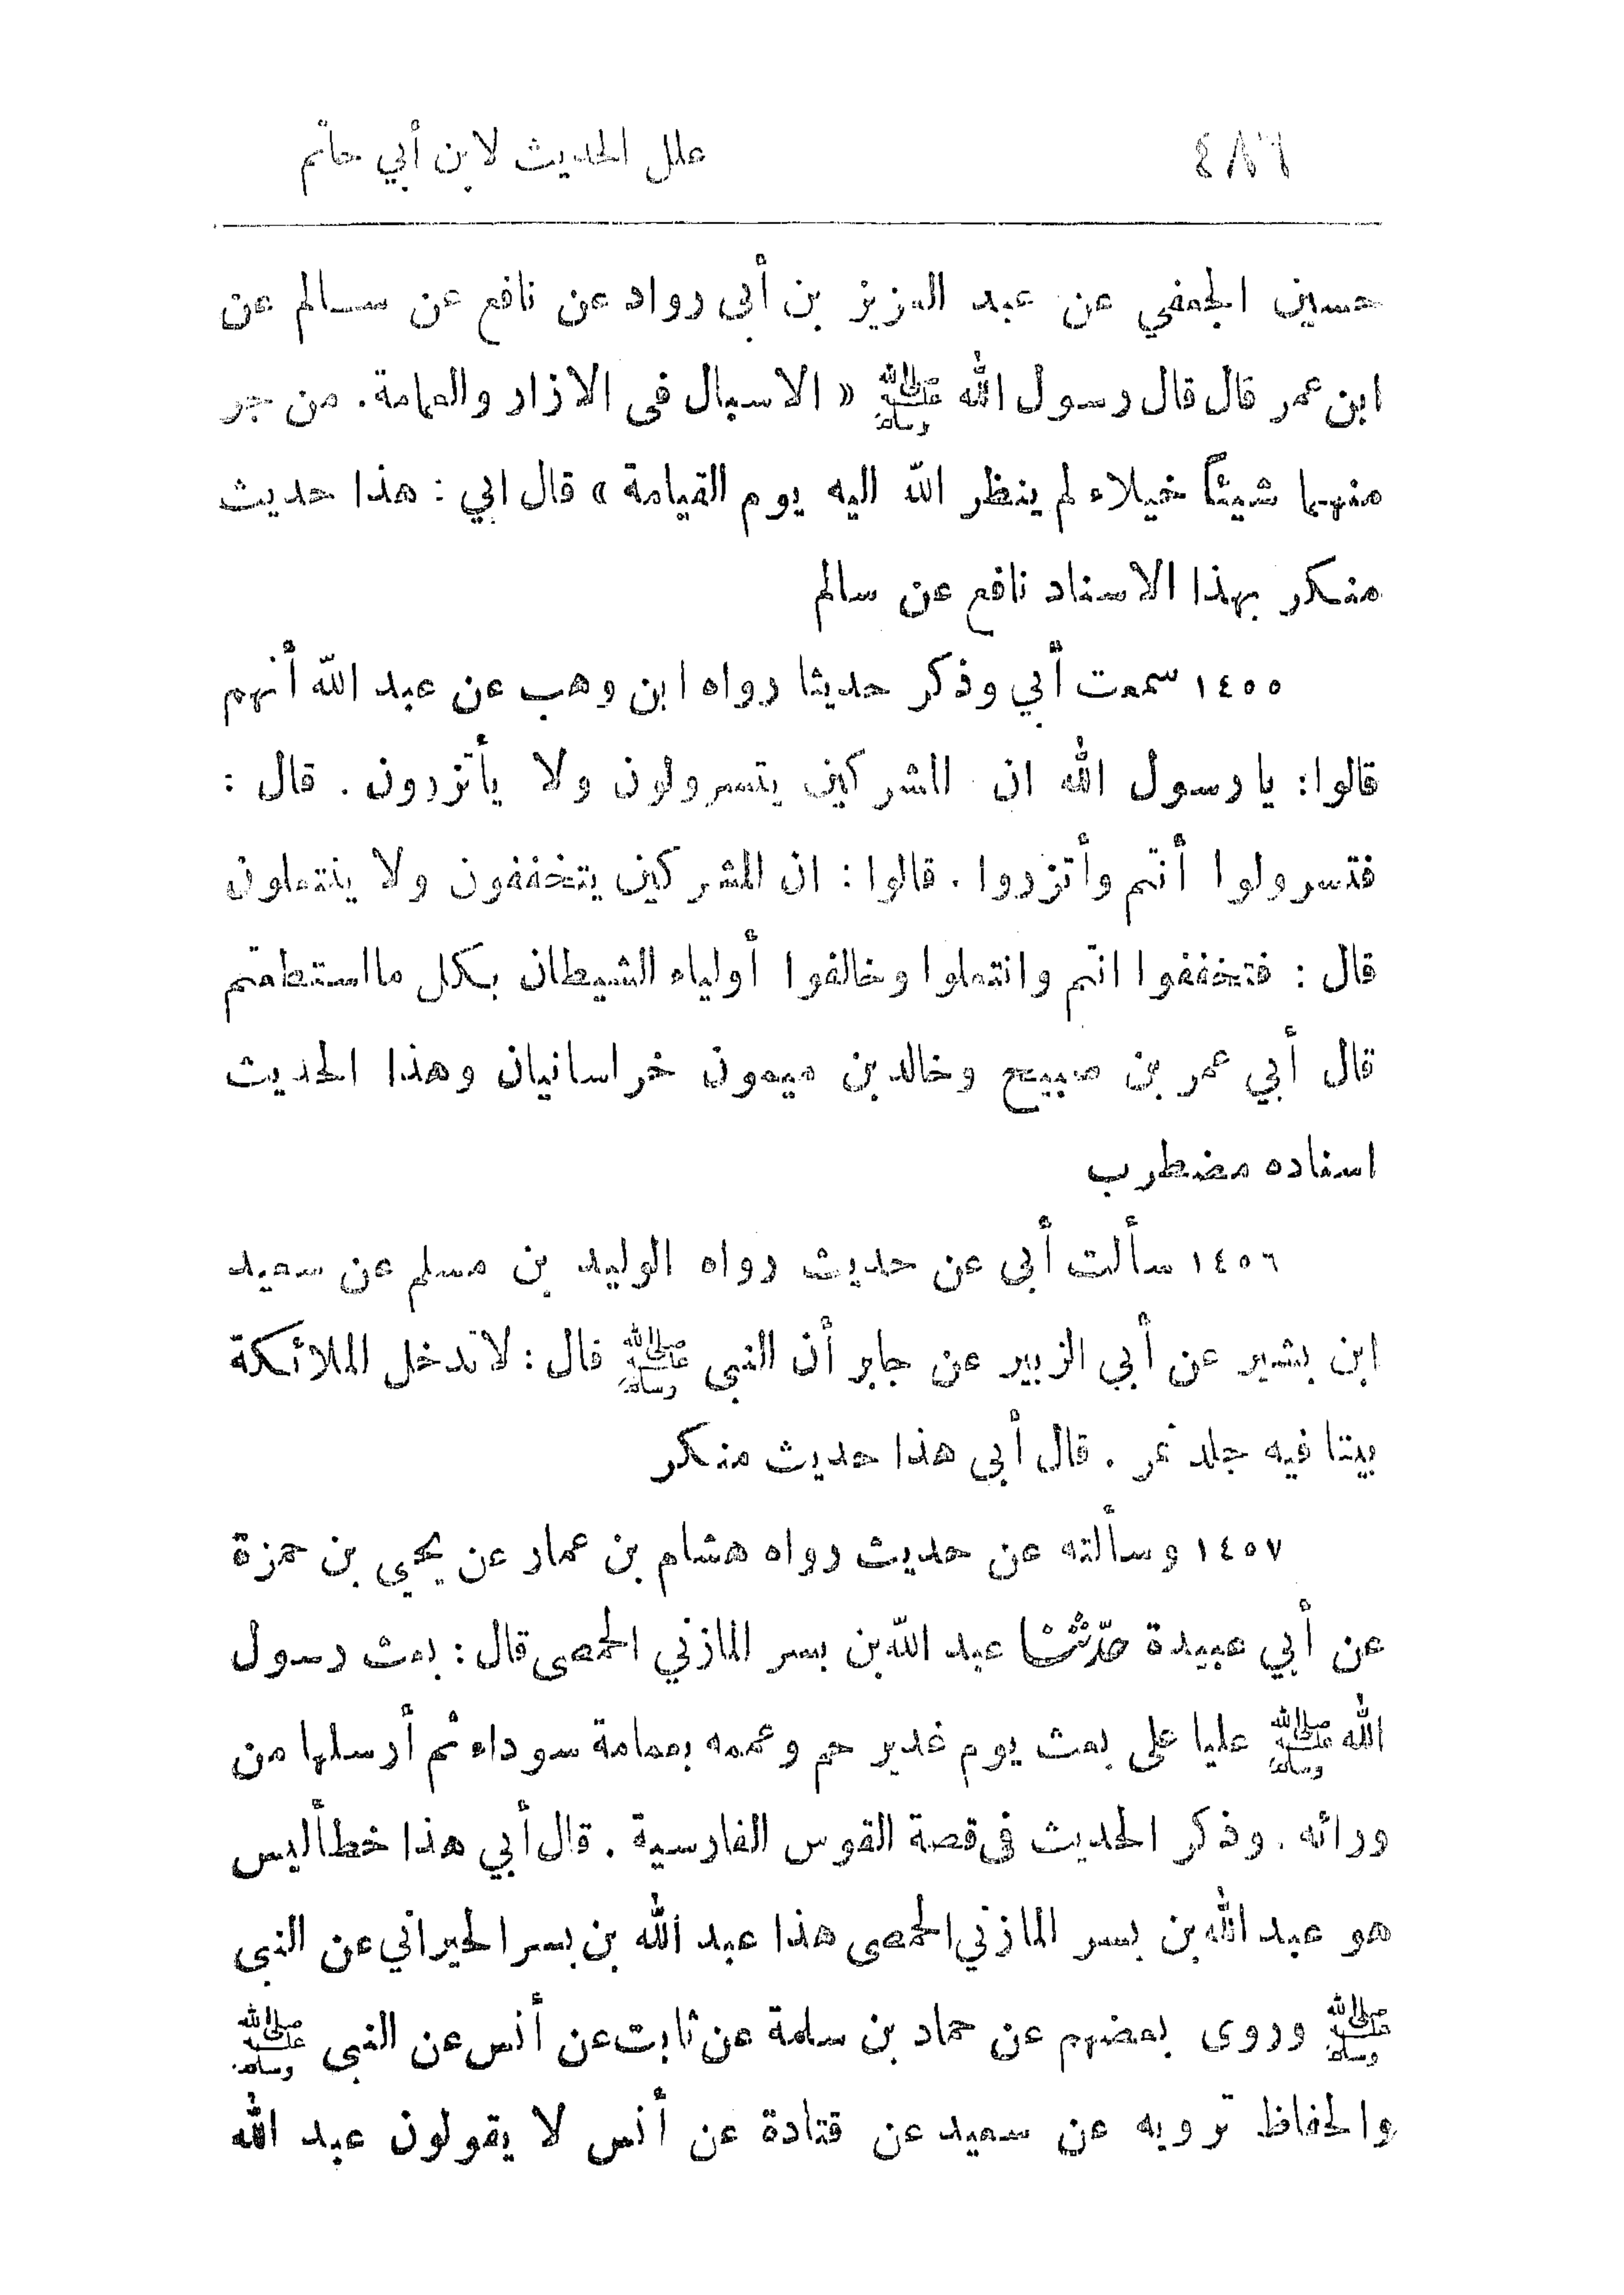 ٤٨٦ علل الحديث لابن أبي حاتم
حسين الجعفي عن عبد العزيز بن أبى رواد عن نافع عن سالم عن
ابن عمر قال قال رسول الله ﷺ « الاسبال فى الازار والعمامة. من جر
منهما شيئاً خيلاء لم ينظر الله اليه يوم القيامة » قال ابي : هذا حديث
منكر بهذا الاسناد نافع عن سالم
١٤٥٥ سمعت أبي وذكر حديثا رواه ابن وهب عن عبد الله أنهم
قالوا: يا رسول الله ان المشركين يتسرولون ولا يأتزرون . قال :
فتسرولوا أنتم وأتزروا . قالوا : ان المشركين يتخففون ولا ينتعلون
قال : فتخففوا انتم وانتعلوا وخالفوا أولياء الشيطان بكل مااستطعتم
قال أبي عمر بن صبيح وخالد بن ميمون خراسانيان وهذا الحديث
اسناده مضطرب
١٤٥٦ سألت أبى عن حديث رواه الوليد بن مسلم عن سعيد
ابن بشير عن أبي الزبير عن جابر أن النبى ﷺ قال : لاتدخل الملائكة
بيتا فيه جلد نمر . قال أبى هذا حديث منكر
١٤٥٧ وسألته عن حديث رواه هشام بن عمار عن يحيى بن حمزة
عن أبي عبيدة حدّثنا عبد الله بن بسر المازني الحمصى قال : بعث رسول
الله ﷺ عليا على بعث يوم غدير حم وعممه بعمامة سوداء ثم أرسلها من
ورائه . وذكر الحديث فى قصة القوس الفارسية . قال أبي هذا خطأ ليس
هو عبد الله بن بسر المازني الحمصى هذا عبد الله بن بسر الحبراني عن النبى
ﷺ وروى بعضهم عن حماد بن سلمة عن ثابت عن أنس عن النبى ﷺ
والحفاظ ترويه عن سعيد عن قتادة عن أنس لا يقولون عبد الله